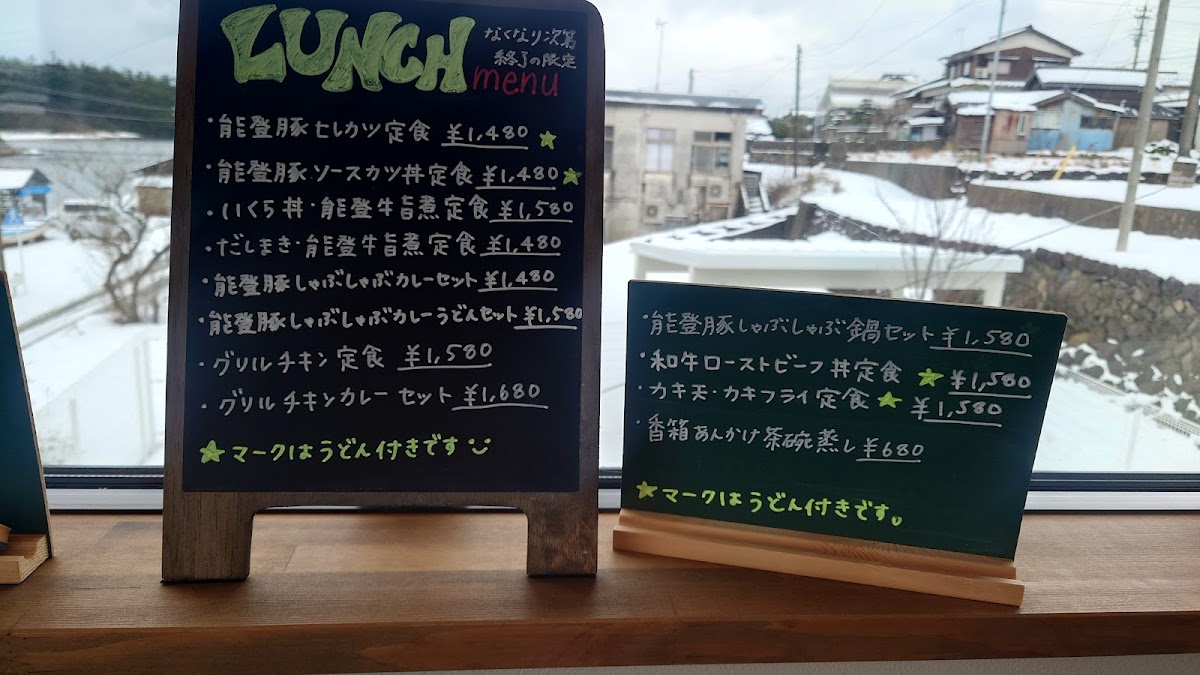 LUNCH
menu
なくなり次第
終了の限定
・能登豚ヒレカツ定食 ¥1,480 ★
・能登豚ソースカツ丼定食 ¥1,480 ★
・いくら丼・能登牛旨煮定食 ¥1,580
・だしまき・能登牛旨煮定食 ¥1,480
・能登豚しゃぶしゃぶカレーセット ¥1,480
・能登豚しゃぶしゃぶカレーうどんセット ¥1,580
・グリルチキン定食 ¥1,580
・グリルチキンカレーセット ¥1,680
★マークはうどん付きです
・能登豚しゃぶしゃぶ鍋セット ¥1,580
・和牛ローストビーフ丼定食 ★ ¥1,580
・カキ天・カキフライ定食 ★ ¥1,580
・香箱あんかけ茶碗蒸し ¥680
★マークはうどん付きです。